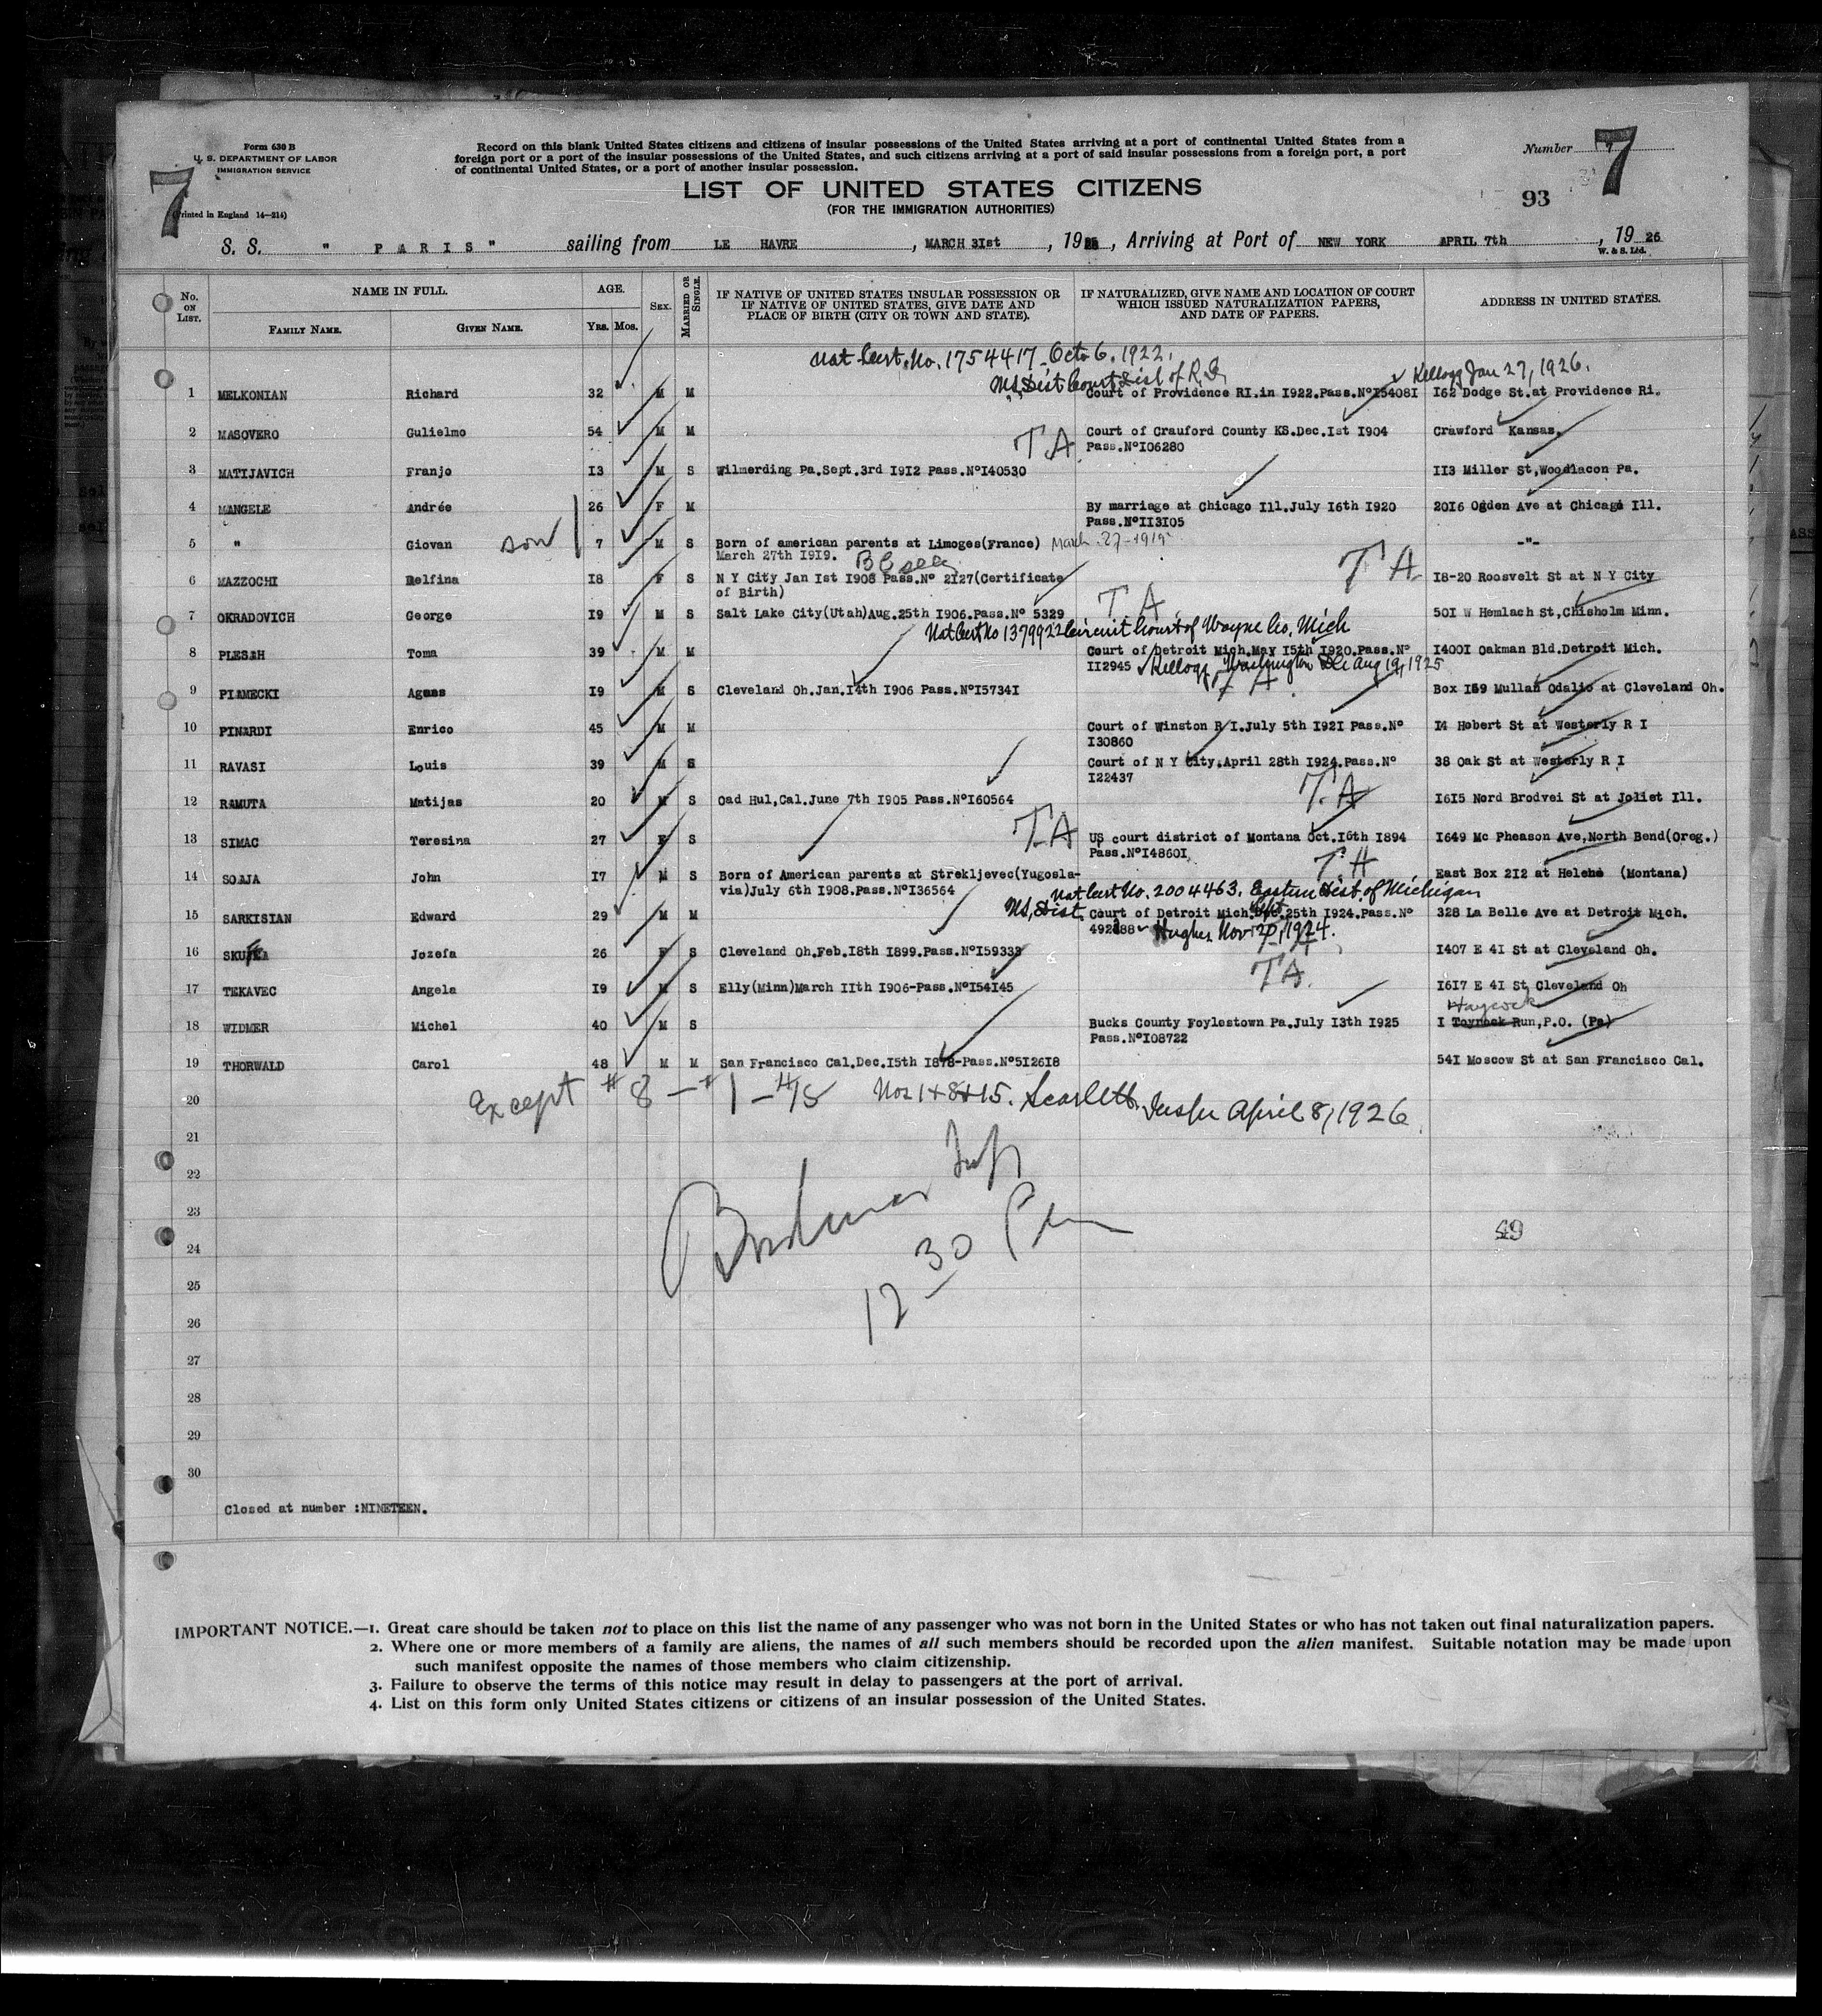 Form 630 B
U. S. DEPARTMENT OF LABOR
IMMIGRATION SERVICE
(Printed in England 14—214)
7
Record on this blank United States citizens and citizens of insular possessions of the United States arriving at a port of continental United States from a
foreign port or a port of the insular possessions of the United States, and such citizens arriving at a port of said insular possessions from a foreign port, a port
of continental United States, or a port of another insular possession.
Number 7
93
LIST OF UNITED STATES CITIZENS
(FOR THE IMMIGRATION AUTHORITIES)
S. S. " PARIS" sailing from LE HAVRE, MARCH 31st, 1926, Arriving at Port of NEW YORK APRIL 7th, 19 26
W. & S. Ltd.
No. ON LIST. NAME IN FULL. FAMILY NAME. GIVEN NAME. AGE. Yrs. Mos. SEX. MARRIED OR SINGLE. IF NATIVE OF UNITED STATES INSULAR POSSESSION OR IF NATIVE OF UNITED STATES, GIVE DATE AND PLACE OF BIRTH (CITY OR TOWN AND STATE). IF NATURALIZED, GIVE NAME AND LOCATION OF COURT WHICH ISSUED NATURALIZATION PAPERS, AND DATE OF PAPERS. ADDRESS IN UNITED STATES.
Nat Cert. No. 1754417 - Octo 6. 1922.
US Dist Court Dist of R.I. Kellogg Jan 27, 1926.
1 MELKONIAN Richard 32 M M Court of Providence RI.in I922.Pass.N°I5408I I62 Dodge St.at Providence Ri.
2 MASOVERO Gulielmo 54 M M T A Court of Crauford County KS.Dec.Ist I904 Crawford Kansas.
Pass.N°I06280
3 MATIJAVICH Franjo I3 M S Wilmerding Pa.Sept.3rd I9I2 Pass.N°I40530 II3 Miller St,Woodlacon Pa.
4 MANGELE Andrée 26 F M By marriage at Chicago Ill.July I6th I920 20I6 Ogden Ave at Chicago Ill.
Pass.N°II3I05
5 " Giovan son 7 M S Born of american parents at Limoges(France) March 27-1919 -"-
March 27th I9I9.
6 MAZZOCHI Delfina I8 F S N Y City Jan Ist I908 Pass.N° 2I27(Certificate T A I8-20 Roosvelt St at N Y City
of Birth)
7 OKRADOVICH George I9 M S Salt Lake City(Utah)Aug.25th I906.Pass.N° 5329 T A 50I W Hemlach St,Chisholm Minn.
Nat Cert No 1379922 Circuit Court of Wayne Co, Mich
8 PLESAH Toma 39 M M Court of Detroit Mich.May I5th I920.Pass.N° I400I Oakman Bld.Detroit Mich.
II2945 Kellogg, Washington DC Aug 19, 1925
9 PIAMECKI Agnes I9 M S Cleveland Oh.Jan.I4th I906 Pass.N°I5734I T A Box I59 Mullan Odalio at Cleveland Oh.
10 PINARDI Enrico 45 M M Court of Winston R I.July 5th I92I Pass.N° I4 Hobert St at Westerly R I
I30860
11 RAVASI Louis 39 M S Court of N Y City.April 28th I924.Pass.N° 38 Oak St at Westerly R I
I22437
12 RAMUTA Matijas 20 M S Oad Hul,Cal.June 7th I905 Pass.N°I60564 T.A I6I5 Nord Brodvei St at Joliet Ill.
13 SIMAC Teresina 27 F S T A US court district of Montana Oct.I6th I894 I649 Mc Pheason Ave,North Bend(Oreg.)
Pass.N°I4860I
14 SOAJA John I7 M S Born of American parents at Strekljevec(Yugosla- T.A East Box 2I2 at Helena (Montana)
via)July 6th I908.Pass.N°I36564
Nat Cert No. 2004463. Eastern Dist. of Michigan
15 SARKISIAN Edward 29 M M US, Dist. Court of Detroit Mich. Sept 25th I924.Pass.N° 328 La Belle Ave at Detroit Mich.
492888 Hughes Nov 20, 1924.
16 Jozefa 26 F S Cleveland Oh.Feb.I8th I899.Pass.N°I59333 I407 E 4I St at Cleveland Oh.
17 TEKAVEC Angela I9 M S Elly(Minn)March IIth I906-Pass.N°I54I45 TA. I6I7 E 4I St Cleveland Oh
Haycock
18 WIDMER Michel 40 M S Bucks County Foylestown Pa.July I3th I925 I Toynock Run,P.O. (Pa)
Pass.N°I08722
19 THORWALD Carol 48 M M San Francisco Cal.Dec.I5th I878-Pass.N°5I26I8 54I Moscow St at San Francisco Cal.
20 Except #8 - #1 - #15 Nos 1+8+15. Scarlett. Inspr April 8, 1926.
21
22 Insp
23
24 12 30 Pm 49
25
26
27
28
29
30
Closed at number :NINETEEN.
IMPORTANT NOTICE.—1. Great care should be taken not to place on this list the name of any passenger who was not born in the United States or who has not taken out final naturalization papers.
2. Where one or more members of a family are aliens, the names of all such members should be recorded upon the alien manifest. Suitable notation may be made upon
such manifest opposite the names of those members who claim citizenship.
3. Failure to observe the terms of this notice may result in delay to passengers at the port of arrival.
4. List on this form only United States citizens or citizens of an insular possession of the United States.